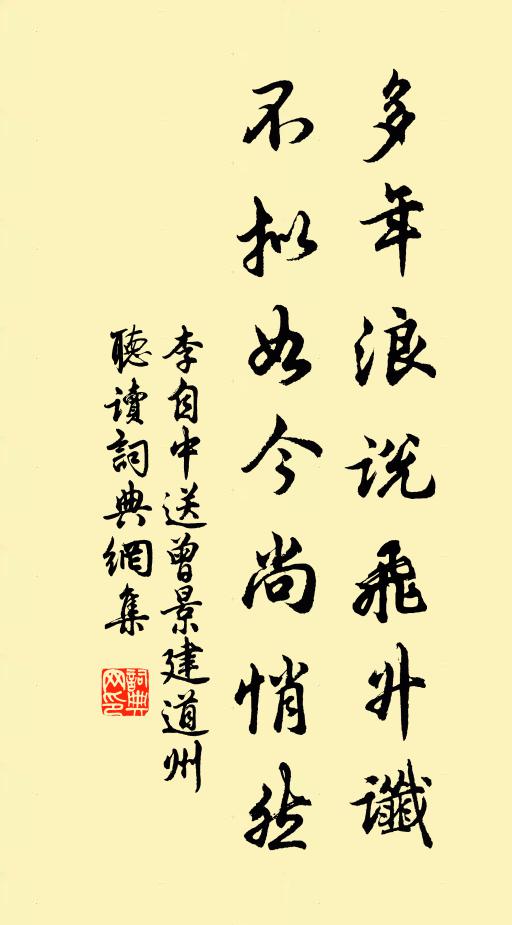 多年浪说飛升讖
不拟如今尚悄然
李自中送曾景建道州
聽讀詞典網集
詞典网印